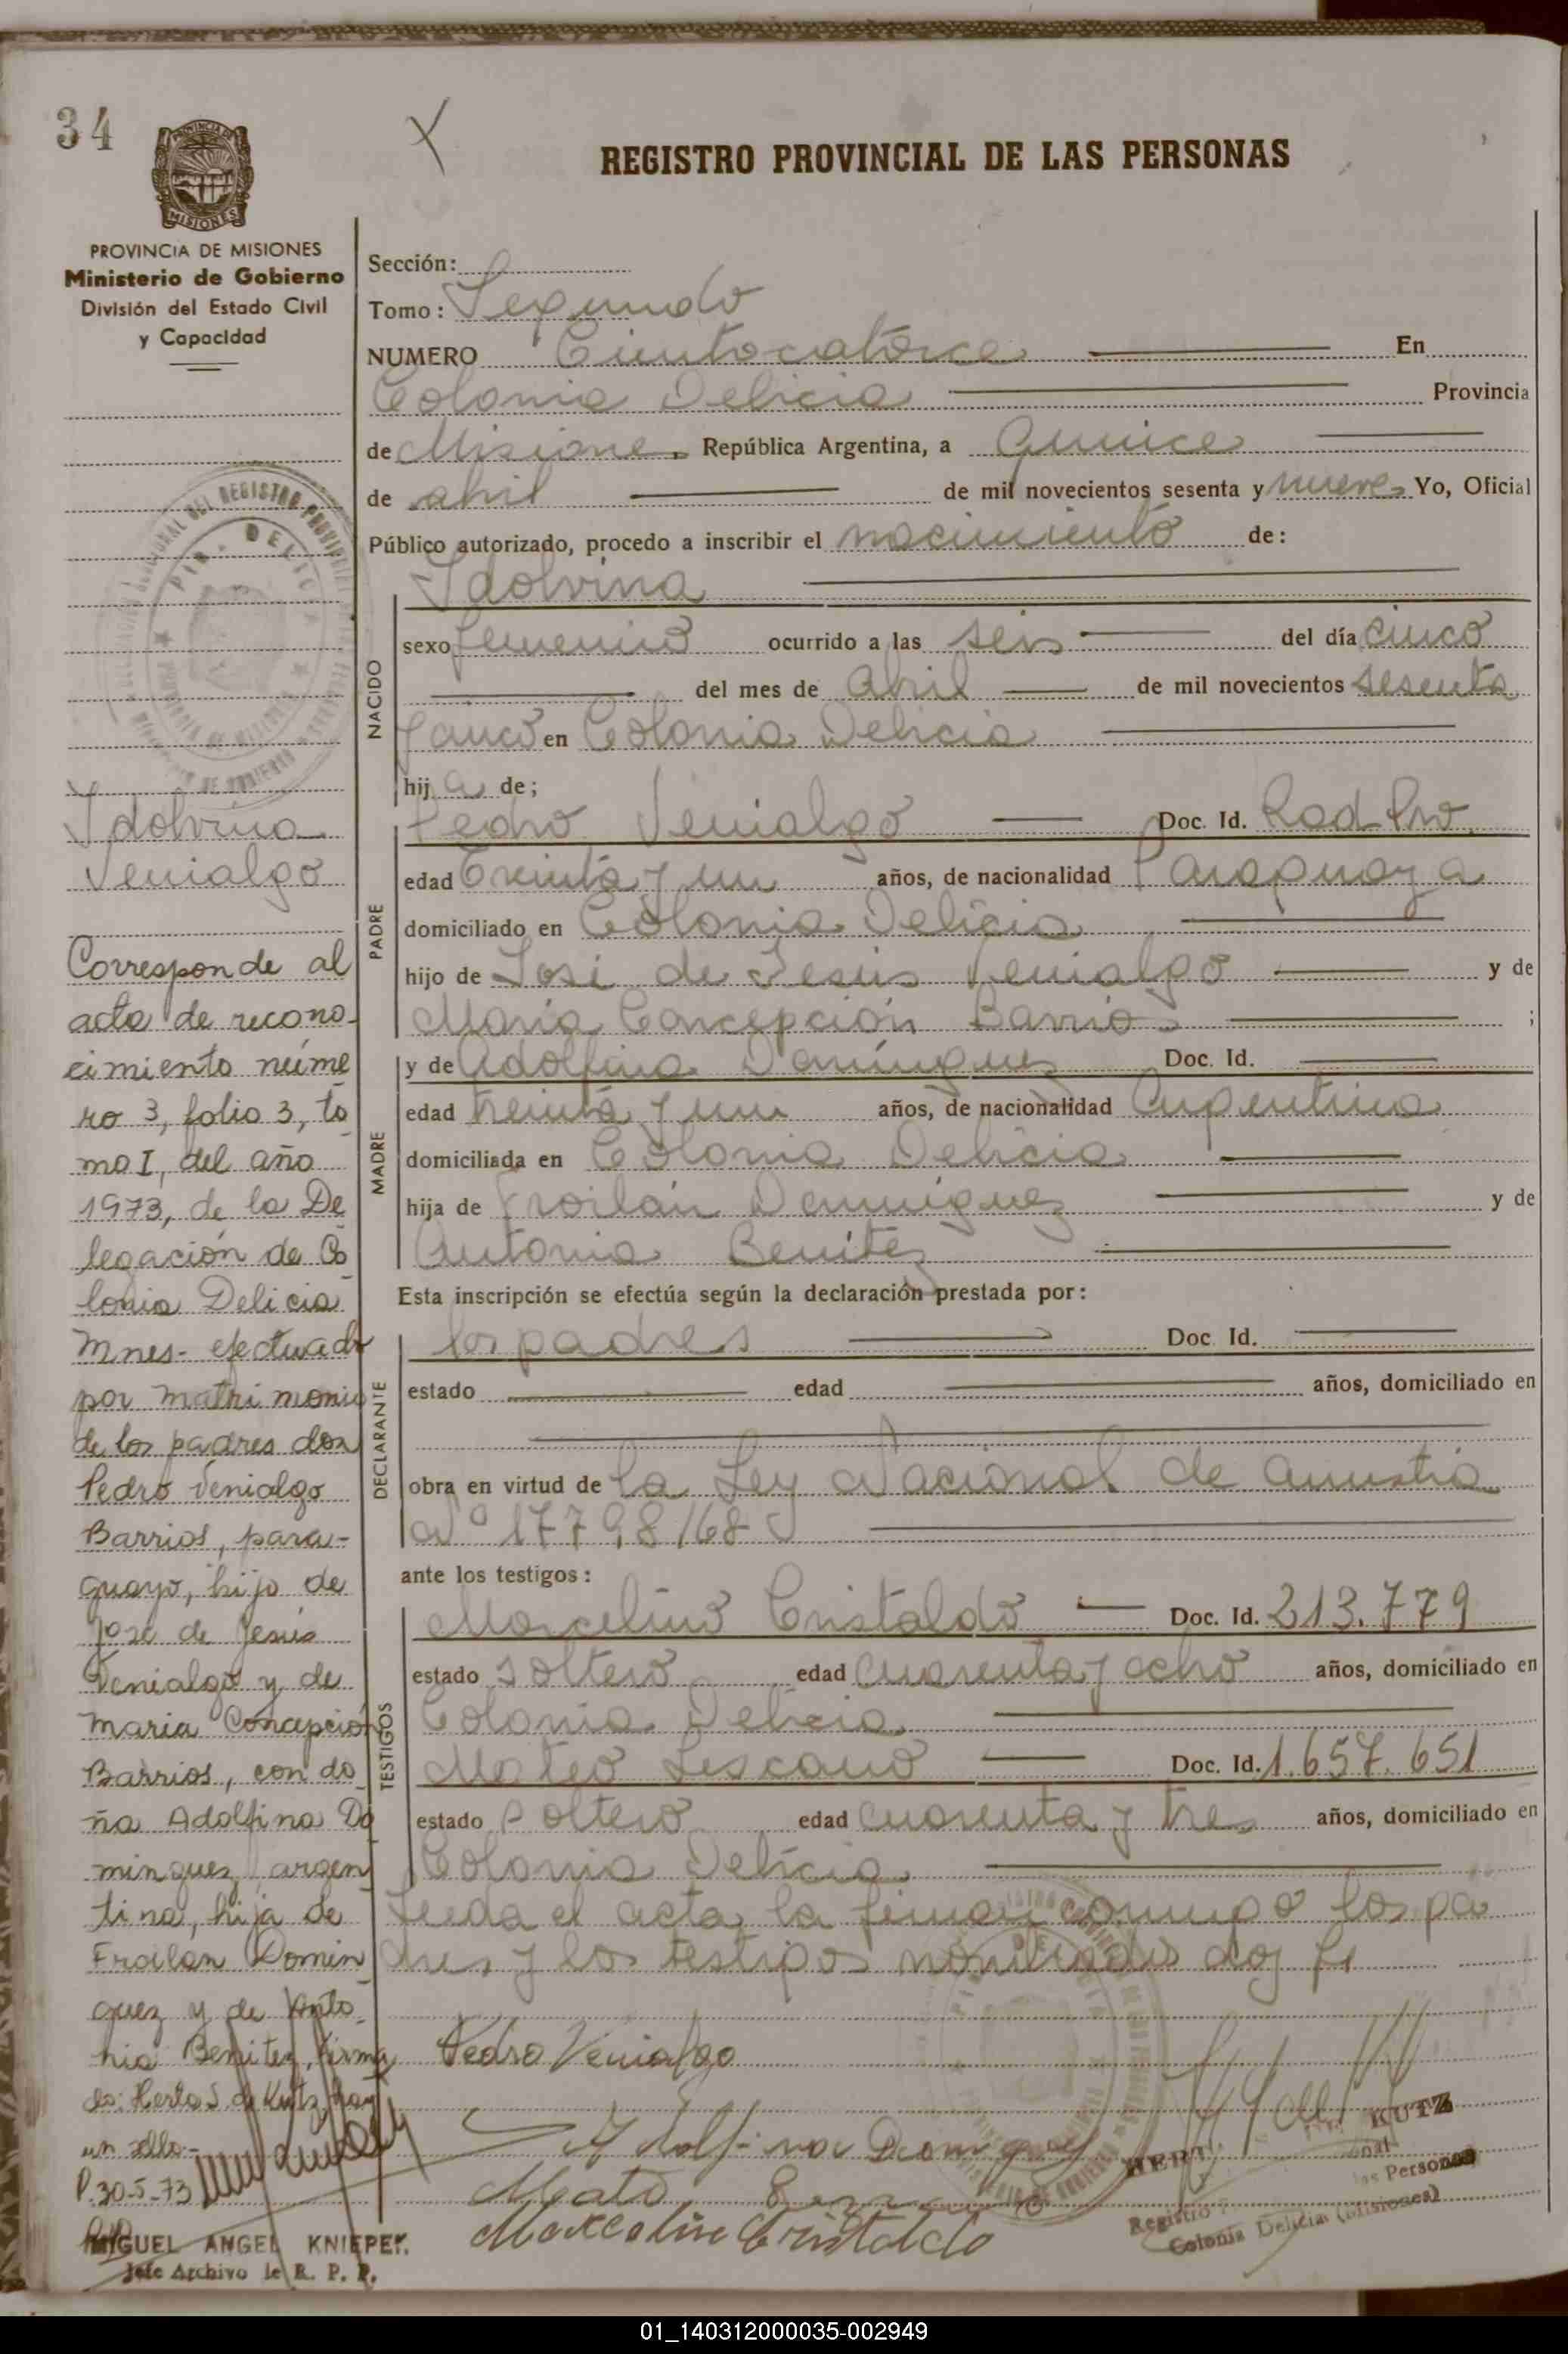 34
REGISTRO PROVINCIAL DE LAS PERSONAS
PROVINCIA DE MISIONES
Ministerio de Gobierno
División del Estado Civil
y Capacidad
Sección:
Tomo: Segundo
NUMERO Cientocatorce En
Colonia Delicia Provincia
de Misiones República Argentina, a Quince
de abril de mil novecientos sesenta y nueve Yo, Oficial
Público autorizado, procedo a inscribir el nacimiento de:
Idolvina
NACIDO
sexo femenino ocurrido a las seis del día cinco
del mes de Abril de mil novecientos sesenta
y cinco en Colonia Delicia
hij a de;
PADRE
Pedro Venialgo Doc. Id.
edad Treinta y un años, de nacionalidad Paraguaya
domiciliado en Colonia Delicia
hijo de José de Jesús Venialgo y de
María Concepción Barrios ;
MADRE
y de Adolfina Domínguez Doc. Id.
edad treinta y un años, de nacionalidad Argentina
domiciliada en Colonia Delicia
hija de Froilán Domínguez y de
Antonia Benítez
Esta inscripción se efectúa según la declaración prestada por:
DECLARANTE
los padres Doc. Id.
estado edad años, domiciliado en
obra en virtud de la Ley Nacional de Amnistía
Nº 17798/68
ante los testigos:
TESTIGOS
Marcelino Cristaldo Doc. Id. 213.779
estado soltero edad cuarenta y ocho años, domiciliado en
Colonia Delicia
Mateo Lescano Doc. Id. 1.657.651
estado soltero edad cuarenta y tres años, domiciliado en
Colonia Delicia
Leeda el acta la firman conmigo los pa
dres y los testigos nombrados doy fe
Pedro Venialgo
Adolfina Domínguez
Mateo
Marcelino Cristaldo
KUTZ
Registro las Personas
Colonia Delicia (Misiones)
Idolvina
Venialgo
Corresponde al
acta de recono-
cimiento núme
ro 3, folio 3, to
mo I, del año
1973, de la De
legación de Co
lonia Delicia
Mnes- efectuado
por matrimonio
de los padres don
Pedro Venialgo
Barrios, para-
guayo, hijo de
José de Jesús
Venialgo y de
Maria Concepción
Barrios, con do
ña Adolfina Do
minguez argen
tina, hija de
Froilan Domin
guez y de Anto
nia Benitez, firma
do: Herta S. de Kutz, hay
un sello-
P. 30-5-73
MIGUEL ANGEL KNIEPER
Jefe Archivo de R. P. P.
01_140312000035-002949